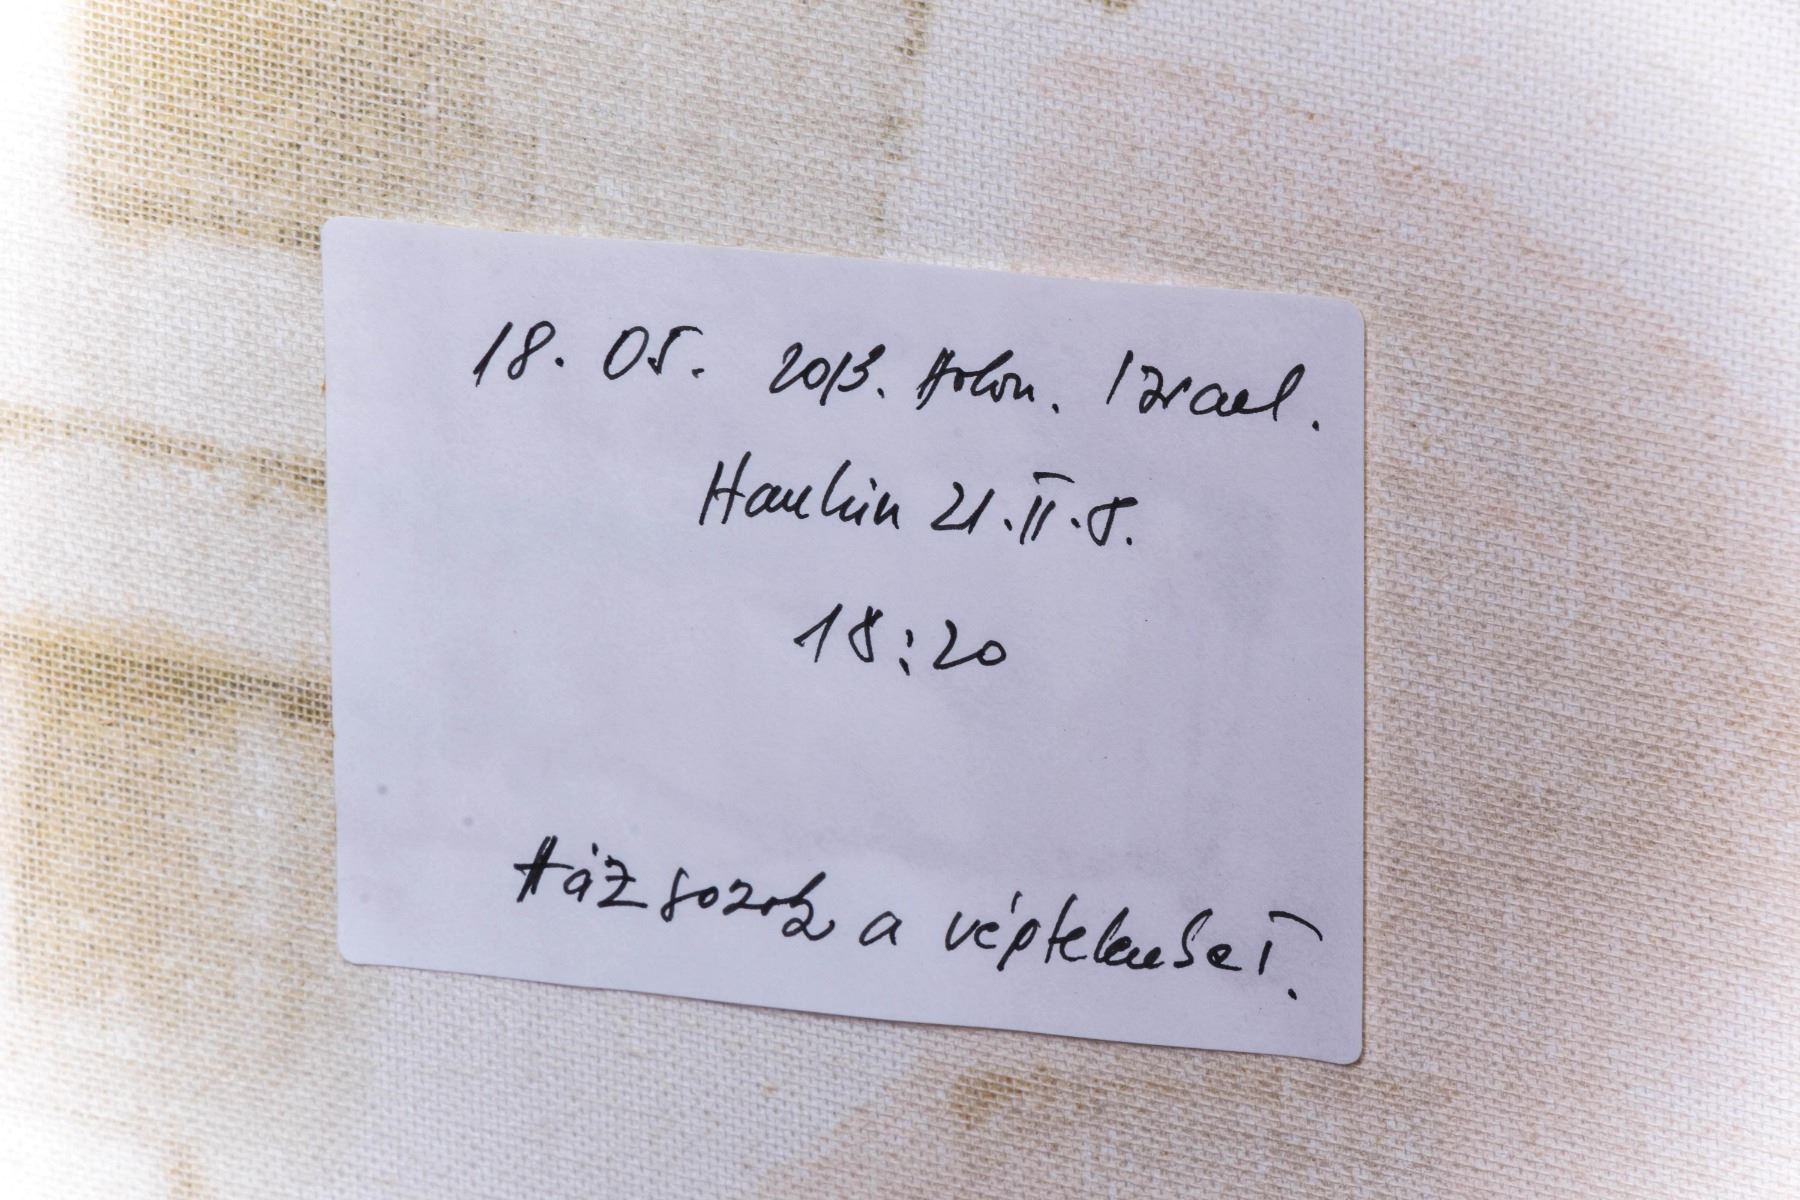 18. 05. 2013. Holon. Izrael.
Hankin 21.II.8.
18:20
a